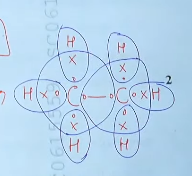 H H
x x
o o
H x o C o — o C o x H 2
o o
x x
H H